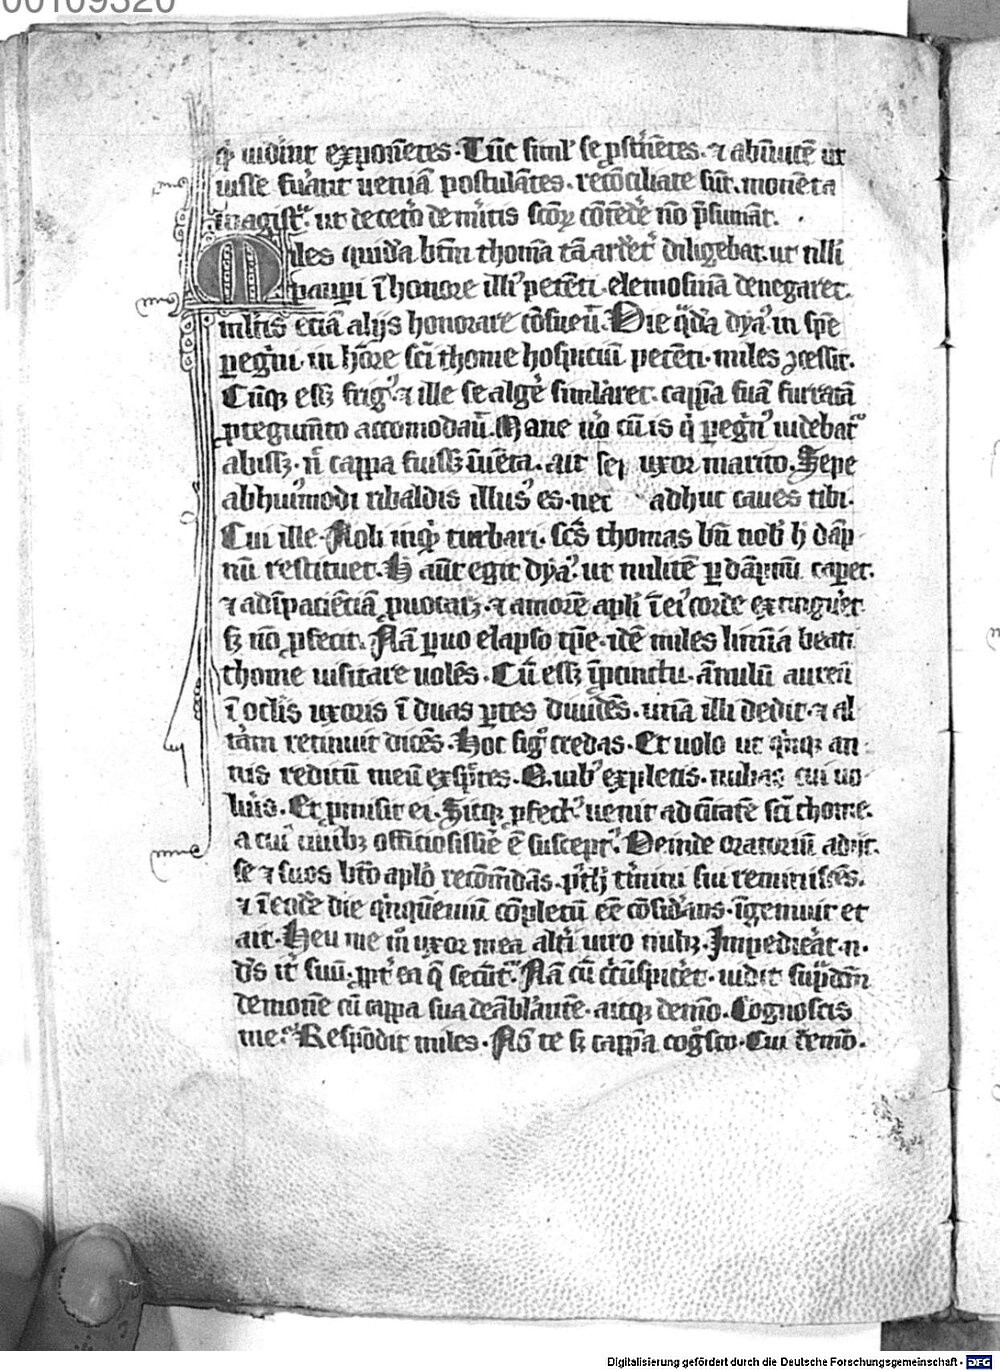 00109320
q̄ uid̄int expon̄etes · Tūc simł se ꝓst̄netes · ⁊ ab hūitē ut
iusse fuāt ueniā postulātes · recōciliate sūt · moneta
magistᷓ · ut de cet̄o de m̄itis scōꝝ cōtēde᷑ nō p̄sumāt ·
Miles quidā btm̄ thomā tā ardēt᷑ diligebat · ut nlli
paupi ī honore illi᷒ petēti · elemosinā denegaret ·
militīs etiā alijs honorare cōsueū · Die q̄dā dya᷒ in spē
ꝑegⁱni · in hōre scī thome hospiciū petēti · miles ꝯcessit ·
Cūqꝫ essꝫ frig᷒ · ⁊ ille se alge᷑ simlaret · cappā suā furratā
ꝓ tegum̄to accomodaū · Mane ūo cū is q̄ ꝑegⁱn᷒ uidebat᷑
abissꝫ · n̄ cappa fuissꝫ īuēta · ait uxor marito · Sepe
ab hui᷒modi ribaldis illus᷒ es · nec adhuc caues tibi ·
Cui ille · Noli inqⁱ turbari · scs̄ thomas bn̄ nob̄ h̄ dāp
nū restituet · H̄ aūt egit dya᷒ · ut militē ꝑ dāpnū caꝑet ·
⁊ ad īpaciētiā ꝓuocāꝫ · ⁊ amorē apłi ī ei᷒ corde extingūet
sꝫ nō ꝓfecit · Nā ꝑuo elapso tp̄e · idē miles limīa beati
thome uisitare uolēs · Cū essꝫ ī ꝓcinctu · ānulū aureū
ī oclis uxoris ī duas ꝑtes diuidēs · unā illi dedit · ⁊ al
t̄am retinuit dicēs · Hoc sigᷠ credas · Et uolo ut qⁱnqꝫ an
nis reditū meū exspc̄tes · Q̄ib᷒ expletis · nubas cui uo
lūis · Et ꝓmisit ei · Sicqꝫ ꝓfect᷒ uenit ad ciuitatē scī thome ·
a cui᷒ ciuibꝫ officiosissīe ē suscept᷒ · Deinde oratoriū adijt ·
se ⁊ suos btō aplō recōmēdās · p̄fīxi t̄mini sui reminiscēs ·
⁊ ī eodē die qⁱnqūeniū cōpletū eē cōsid̄ans · īgemuit et
ait · Heu me m̄ uxor mea alt̄i uiro nubꝫ · Impedieāt · n ·
ds̄ it̄ suū · ꝓpt̄ ea q̄ secūt᷑ · Nā cū c̄cūspic̄et · uidit sup̄dcm̄
demonē cū cappa sua deābulātē · aitqꝫ demō · Cognoscis
me · Respōdit miles · Nō te sꝫ cappā cogᷠsco · Cui demō ·
Digitalisierung gefördert durch die Deutsche Forschungsgemeinschaft - DFG